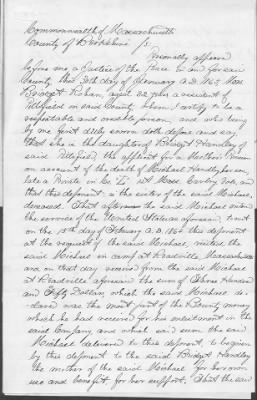 Commonwealth of Massachusetts
County of Berkshire
Personally appeared
before me a Justice of the Peace in and for said
County this 30th day of January A.D. 186 Mrs
Bridget aged 22 years a resident of
Pittsfield in said County whom I certify to be a
respectable and credible person, and who being
by me first duly sworn doth depose and say
that she is the daughter of Bridget Handley of
said Pittsfield, the applicant for a Mother's Pension
on account of the death of Michael Handley her son,
late a Private in Co. 1st Mass Cavalry Vols, and
that this deponent is the sister of the said Michael,
deceased. That after the said Michael entered
the service of the United States as aforesaid, to wit
on the 15th day of February A.D. 1864 this deponent
at the request of the said Michael, visited the
said Michael in camp at Readville Massachusetts
and on that day received from the said Michael
at Readville aforesaid the sum of Three Hundred
and Fifty Dollars, which the said Michael
was the most part of the Bounty money
which he had received for his enlistment in the
said Company and which said sum the said
Michael delivered to this deponent, to be given
by this deponent to the said Bridget Handley
the mother of the said Michael for her own
use and benefit for her support. That the said